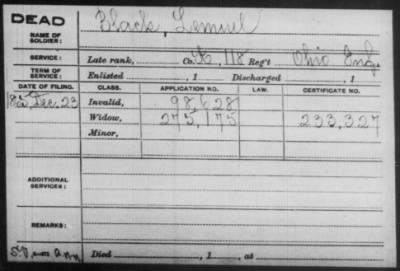 DEAD
NAME OF SOLDIER: Black, Lemuel
SERVICE: Late rank, Co. K, 118 Reg't Ohio Inf.
TERM OF SERVICE: Enlisted , 1 Discharged , 1
DATE OF FILING. CLASS. APPLICATION NO. LAW. CERTIFICATE NO.
Dec. 23 Invalid, 98,628
Widow, 275,175 233,327
Minor,
ADDITIONAL SERVICES:
REMARKS:
Died , 1 , at